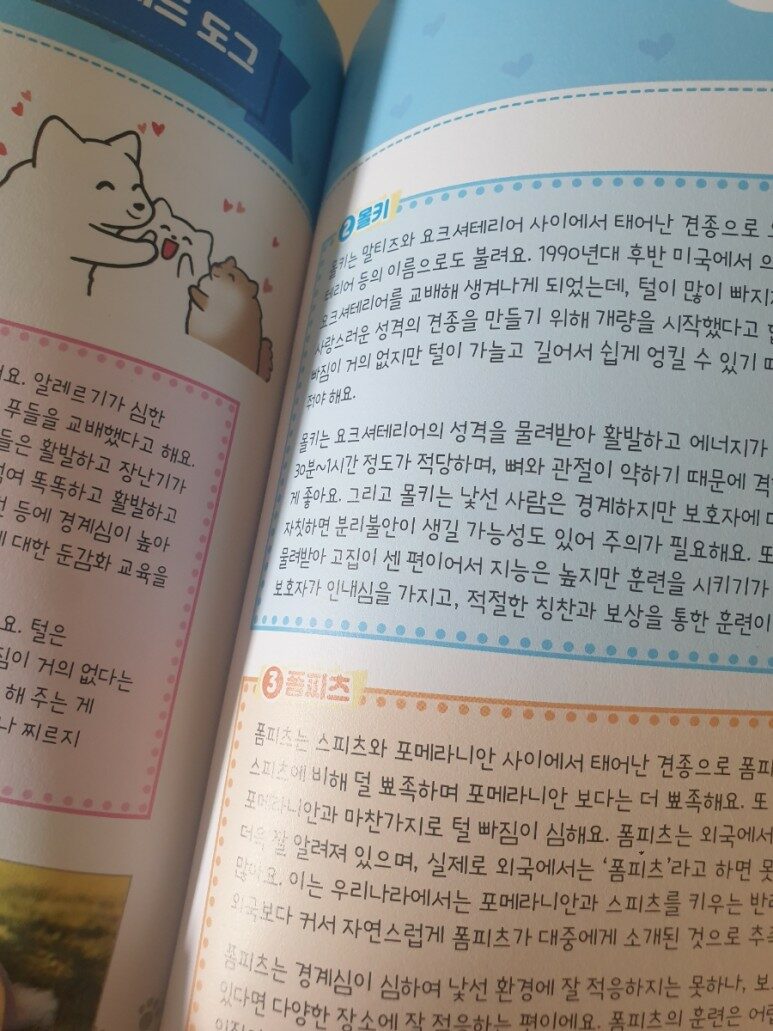 드 도그
요. 알레르기가 심한
푸들을 교배했다고 해요.
들은 활발하고 장난기가
여 똑똑하고 활발하고
등에 경계심이 높아
대한 둔감화 교육을
요. 털은
짐이 거의 없다는
해 주는 게
나 찌르지
2 몰키
몰키는 말티즈와 요크셔테리어 사이에서 태어난 견종으로
테리어 등의 이름으로도 불려요. 1990년대 후반 미국에서
요크셔테리어를 교배해 생겨나게 되었는데, 털이 많이 빠지
사랑스러운 성격의 견종을 만들기 위해 개량을 시작했다고
빠짐이 거의 없지만 털이 가늘고 길어서 쉽게 엉킬 수 있기
줘야 해요.
몰키는 요크셔테리어의 성격을 물려받아 활발하고 에너지가
30분~1시간 정도가 적당하며, 뼈와 관절이 약하기 때문에 격
게 좋아요. 그리고 몰키는 낯선 사람은 경계하지만 보호자에
자칫하면 분리불안이 생길 가능성도 있어 주의가 필요해요. 또
물려받아 고집이 센 편이어서 지능은 높지만 훈련을 시키기가
보호자가 인내심을 가지고, 적절한 칭찬과 보상을 통한 훈련이
3 폼피츠
폼피츠는 스피츠와 포메라니안 사이에서 태어난 견종으로 폼피
스피츠에 비해 덜 뾰족하며 포메라니안 보다는 더 뾰족해요. 또
포메라니안과 마찬가지로 털 빠짐이 심해요. 폼피츠는 외국에서
더욱 잘 알려져 있으며, 실제로 외국에서는 ‘폼피츠’라고 하면 못
많아요. 이는 우리나라에서는 포메라니안과 스피츠를 키우는 반려
외국보다 커서 자연스럽게 폼피츠가 대중에게 소개된 것으로 추측
폼피츠는 경계심이 심하여 낯선 환경에 잘 적응하지는 못하나, 보
있다면 다양한 장소에 잘 적응하는 편이에요. 폼피츠의 훈련은 어렵